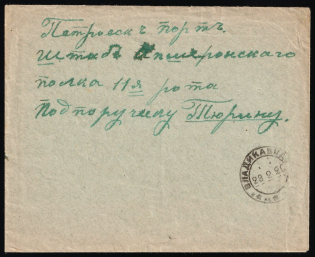 Петровскъ портъ.
Штабъ Апшеронского
полка 11я рота
Подпоручику Тюрину.
ВЛАДИКАВК